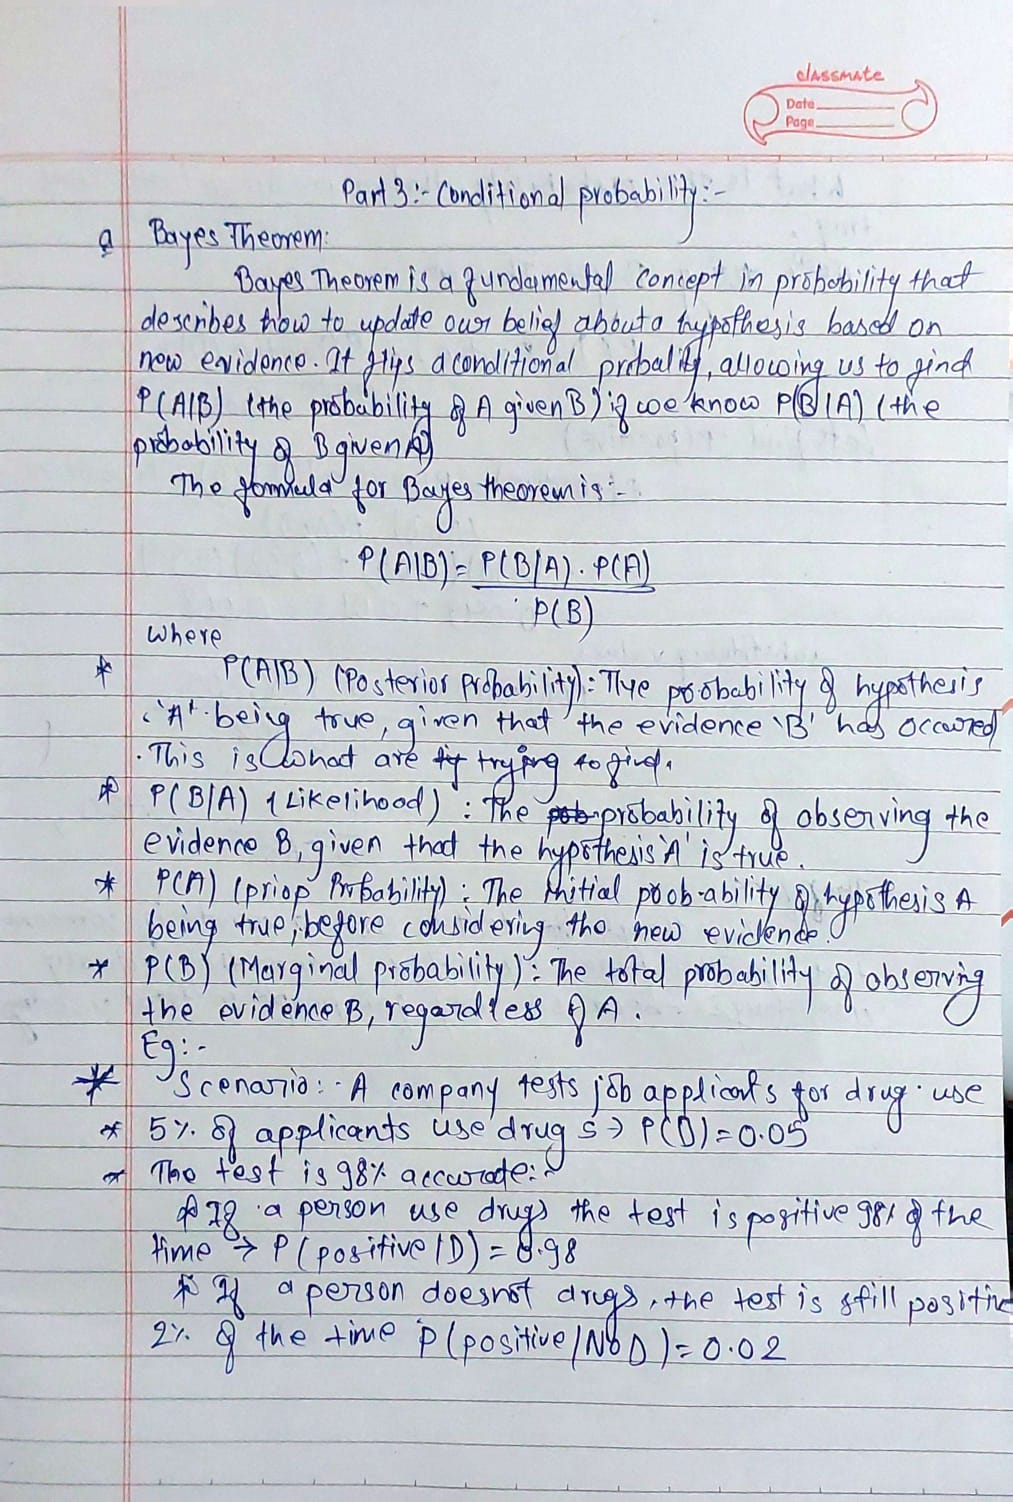 classmate
Date
Page
Part 3:- Conditional probability:-
a Bayes Theorem:
Bayes Theorem is a fundamental concept in probability that
describes how to update our belief about a hypothesis based on
new evidence. It flips a conditional prebality, allowing us to find
P(A|B) (the probability of A given B) if we know P(B|A) (the
probability of B given A)
The formula for Bayes theorem is :-
P(A|B) = P(B/A) . P(A)
P(B)
where
* P(A|B) (Posterior Probability): The probability of hypothesis
'A' being true, given that the evidence 'B' has occured
. This is what are trying to find.
* P(B/A) (Likelihood) : The probability of observing the
evidence B, given that the hypothesis 'A' is true.
* P(A) (prior Probability) : The initial poob-ability of hypothesis A
being true, before considering the new evidence.
* P(B) (Marginal probability) : The total probability of observing
the evidence B, regardless of A .
Eg:-
* Scenario: - A company tests job applicants for drug use
* 5% of applicants use drug s → P(D) = 0.05
* The test is 98% accurate:-
* If a person use drugs the test is positive 98% of the
time → P(positive/D) = 0.98
* If a person doesnot drugs, the test is still positive
2% of the time P(positive/No D) = 0.02